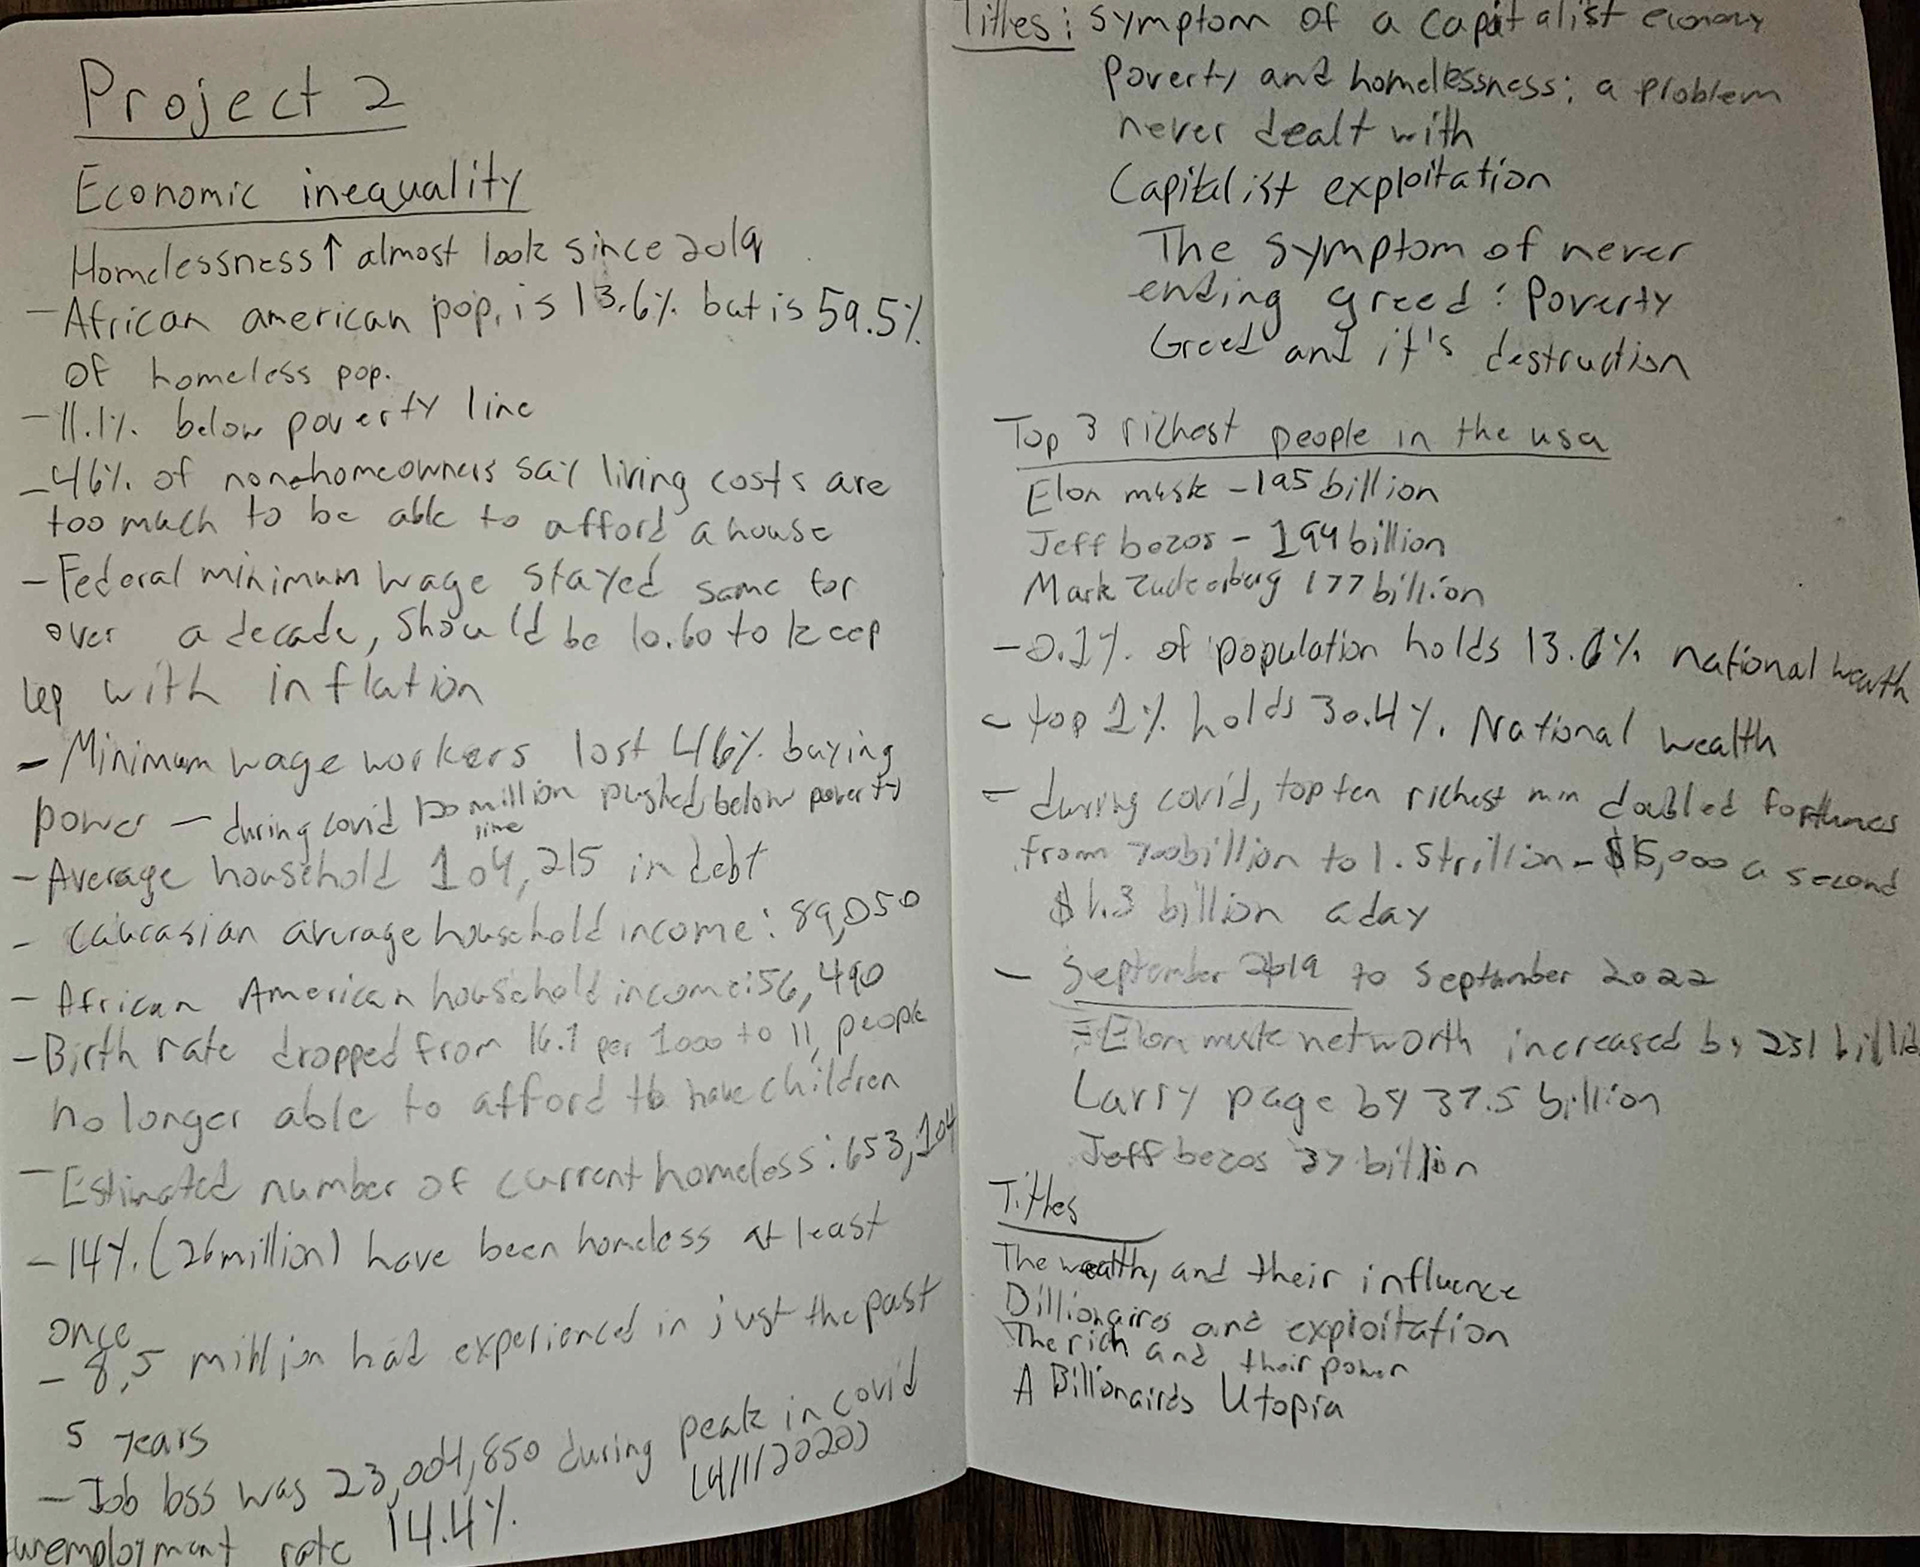 Project 2
Economic inequality
Homelessness ↑ almost look since 2019
- African american pop. is 13.6% but is 59.5%
of homeless pop.
- 11.1% below poverty line
- 46% of non-homeowners say living costs are
too much to be able to afford a house
- Federal minimum wage stayed same for
over a decade, should be 10.60 to keep
up with inflation
- Minimum wage workers lost 46% buying
power - during covid 120 million pushed below poverty
line
- Average household 104,215 in debt
- Caucasian average household income: 89,050
- African American household income: 56,490
- Birth rate dropped from 16.7 per 1000 to 11, people
no longer able to afford to have children
- Estimated number of current homeless: 653,104
- 14% (26 million) have been homeless at least
once
- 8.5 million had experienced in just the past
5 years
- Job loss was 23,004,850 during peak in covid
(4/1/2020)
unemployment rate 14.4%
Titles: Symptom of a capitalist economy
Poverty and homelessness: a problem
never dealt with
Capitalist exploitation
The symptom of never
ending greed: Poverty
Greed and it's destruction
Top 3 richest people in the usa
Elon musk - 195 billion
Jeff bezos - 194 billion
Mark Zuckerburg 177 billion
- 0.1% of population holds 13.6% national wealth
- top 1% holds 30.4% National wealth
- during covid, top ten richest men doubled forthunes
from 700billion to 1.5trillion - $15,000 a second
$1.3 billion a day
- September 2019 to September 2022
- Elon musk networth increased by 231 billion
Larry page by 37.5 billion
Jeff bezos 37 billion
Titles
The wealthy and their influence
Billionaires and exploitation
The rich and their power
A Billionaires Utopia